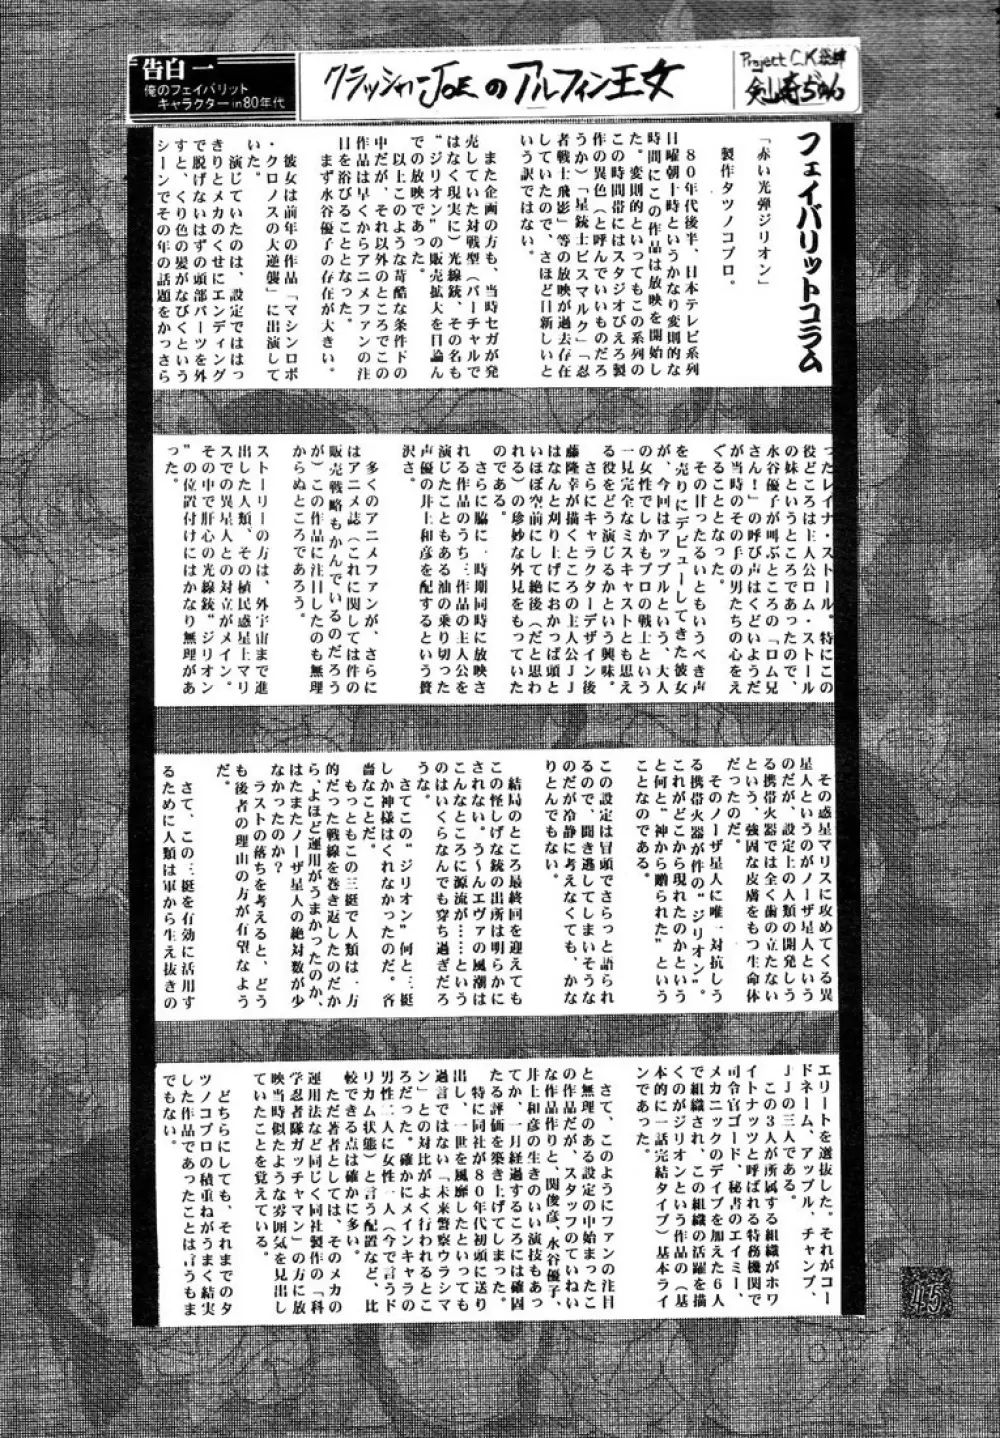 告白一
俺のフェイバリット
キャラクターin80年代
クラッシャーJOEのアルフィン王女
Project C.K
フェイバリットコラム
「赤い光弾ジリオン」
製作タツノコプロ。
80年代後半、日本テレビ系列
日曜朝十時というかなり変則的な
時間にこの作品は放映を開始し
た。変則的といってもこの系列の
この時間帯にはスタジオぴえろ製
作の異色(と呼んでいいものだろ
うか)「星銃士ビスマルク」「忍
者戦士飛影」等の放映が過去存在
していたので、さほど目新しいと
いう訳ではない。
また企画の方も、当時セガが発
売していた対戦型(バーチャルで
はなく現実に)光線銃、その名も
"ジリオン"の販売拡大を目論ん
での放映であった。
以上このような苛酷な条件下の
中だが、それ以外のところでこの
作品は早くからアニメファンの注
目を浴びることとなった。
まず水谷優子の存在が大きい。
彼女は前年の作品「マシンロボ
・クロノスの大逆襲」に出演して
いた。
演じていたのは、設定でははっ
きりとメカのくせにエンディング
で脱げないはずの頭部パーツを外
すと、くり色の髪がなびくという
シーンでその年の話題をかっさら
ったレイナ・ストール。特にこの
役どころは主人公ロム・ストール
の妹というところであったので、
水谷優子が叫ぶところの「ロム兄
さん!」の呼び声はくどいようだ
が当時のその手の男たちの心をえ
ぐることとなった。
その甘ったるいともいうべき声
を売りにデビューしてきた彼女
が、今回はアップルという、大人
の女性でしかもプロの戦士という
一見完全なミスキャストとも思え
る役をどう演じるかという興味。
さらにキャラクターデザイン後
藤隆幸が描くところの主人公JJ
はなんと刈り上げにおかっぱ頭と
いいほぼ空前にして絶後(だと思わ
れる)の珍妙な外見をもっていた
のである。
さらに脇に一時期同時に放映さ
れる作品のうち三作品の主人公を
演じたこともある油の乗り切った
声優の井上和彦を配するという贅
沢さ。
多くのアニメファンが、さらに
はアニメ誌(これに関しては件の
販売戦略もかんでいるのだろう
が)この作品に注目したのも無理
からぬところであろう。
ストーリーの方は、外宇宙まで進
出した人類、その植民惑星上マリ
スでの異星人との対立がメイン。
その中で肝心の光線銃"ジリオン
"の位置付けにはかなり無理があ
った。
その惑星マリスに攻めてくる異
星人というのがノーザ星人という
のだが、設定上の人類の開発しう
る携帯火器では全く歯の立たない
という、強固な皮膚をもつ生命体
だったのだ。
そのノーザ星人に唯一対抗しう
る携帯火器が件の"ジリオン"。
これがどこから現れたのかという
と何と"神から贈られた"という
ことなのである。
この設定は冒頭でさらっと語られ
るので、聞き逃してしまいそうな
のだが冷静に考えなくても、かな
りとんでもない。
結局のところ最終回を迎えても
この怪しげな銃の出所は明らかに
されない。う~んエヴァの風潮は
こんなところに源流が……という
のはいくらなんでも穿ち過ぎだろ
うな。
さてこの"ジリオン"何と三挺
しか神様はくれなかったのだ。吝
嗇なことだ。
もっともこの三挺で人類は一方
的だった戦線を巻き返したのだか
ら、よほど運用がうまかったのか、
はたまたノーザ星人の絶対数が少
なかったのか?
ラストの落ちを考えると、どう
も後者の理由の方が有望なよう
だ。
さて、この三挺を有効に活用す
るために人類は軍から生え抜きの
エリートを選抜した。それがコー
ドネーム、アップル、チャンプ、
JJの三人である。
この3人が所属する組織がホワ
イトナッツと呼ばれる特務機関で
司令官ゴード、秘書のエイミー、
メカニックのデイブを加えた6人
で組織され、この組織の活躍を描
くのがジリオンという作品の(基
本的に一話完結タイプ)基本ライ
ンであった。
さて、このようにファンの注目
と無理のある設定の中始まったこ
の作品だが、スタッフのていねい
な作品作りと、関俊彦、水谷優子、
井上和彦の生きのいい演技もあっ
てか、一月経過するころには確固
たる評価を築き上げてしまった。
特に同社が80年代初頭に送り
出し、一世を風靡したといっても
過言ではない「未来警察ウラシマ
ン」との対比がよく行われるとこ
ろだった。確かにメインキャラの
男性二人に女性一人(今で言うド
リカム状態)と言う配置など、比
較できる点は確かに多い。
ただ著者としては、そのメカの
運用法など同じく同社製作の「科
学忍者隊ガッチャマン」の方に放
映当時似たような雰囲気を見出し
ていたことを覚えている。
どちらにしても、それまでのタ
ツノコプロの積重ねがうまく結実
した作品であったことは言うもま
でもない。
45